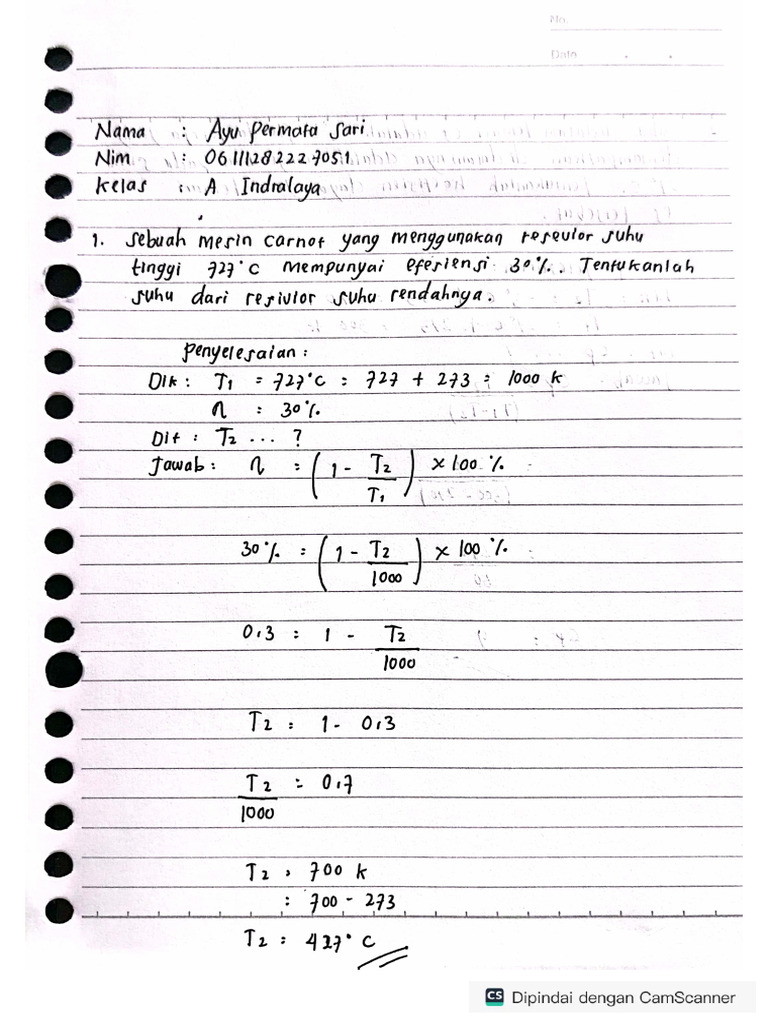 No.
Date
Nama : Ayu Permata Sari
Nim : 06111282227051
Kelas : A Indralaya
1. Sebuah mesin carnot yang menggunakan resevior suhu
tinggi 727°C mempunyai efesiensi 30%. Tentukanlah
suhu dari resivior suhu rendahnya.
Penyelesaian :
Dik : T1 = 727°C = 727 + 273 = 1000 K
η = 30%
Dit : T2 ... ?
Jawab : η = (1 - T2/T1) × 100 %
30% = (1 - T2/1000) × 100 %
0,3 = 1 - T2/1000
T2 = 1 - 0,3
T2/1000 = 0,7
T2 = 700 K
= 700 - 273
T2 = 427°C
CS Dipindai dengan CamScanner